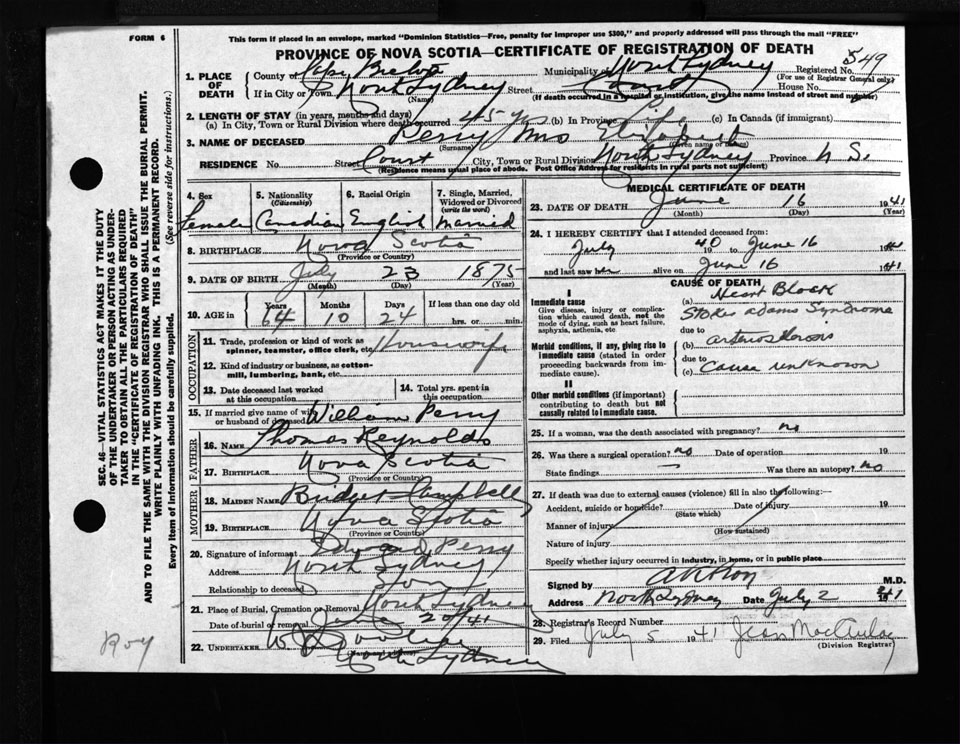 FORM 6
This form if placed in an envelope, marked "Dominion Statistics—Free, penalty for improper use $300," and properly addressed will pass through the mail "FREE"
PROVINCE OF NOVA SCOTIA—CERTIFICATE OF REGISTRATION OF DEATH
SEC. 46—VITAL STATISTICS ACT MAKES IT THE DUTY
OF THE UNDERTAKER OR PERSON ACTING AS UNDER-
TAKER TO OBTAIN ALL THE PARTICULARS REQUIRED
IN THE "CERTIFICATE OF REGISTRATION OF DEATH"
AND TO FILE THE SAME WITH THE DIVISION REGISTRAR WHO SHALL ISSUE THE BURIAL PERMIT.
WRITE PLAINLY WITH UNFADING INK. THIS IS A PERMANENT RECORD.
Every item of information should be carefully supplied. (See reverse side for instructions.)
1. PLACE OF DEATH County of Cape Breton Municipality North Sydney Registered No. 549
(For use of Registrar General only)
If in City or Town North Sydney Street Court House No.
(Name) (If death occurred in a hospital or institution, give the name instead of street and number)
2. LENGTH OF STAY (in years, months and days)
(a) In City, Town or Rural Division where death occurred 45 yrs (b) In Province Life (c) In Canada (if immigrant)
3. NAME OF DECEASED Perry Mrs Elizabeth
(Surname) (Given name or names)
RESIDENCE No. Street Court City, Town or Rural Division North Sydney Province N. S.
(Residence means usual place of abode. Post Office Address for residents in rural parts not sufficient)
4. Sex 5. Nationality (Citizenship) 6. Racial Origin 7. Single, Married, Widowed or Divorced (write the word)
Female Canadian English Married
8. BIRTHPLACE Nova Scotia
(Province or Country)
9. DATE OF BIRTH July 23 1875
(Month) (Day) (Year)
10. AGE in Years Months Days If less than one day old
64 10 24 hrs. or min.
OCCUPATION
11. Trade, profession or kind of work as spinner, teamster, office clerk, etc. Housewife
12. Kind of industry or business, as cotton-mill, lumbering, bank, etc.
13. Date deceased last worked at this occupation
14. Total yrs. spent in this occupation
15. If married give name of wife or husband of deceased William Perry
FATHER
16. NAME Thomas Reynolds
17. BIRTHPLACE Nova Scotia
(Province or Country)
MOTHER
18. MAIDEN NAME Bridget Campbell
19. BIRTHPLACE Nova Scotia
(Province or Country)
20. Signature of informant Edward Perry
Address North Sydney
Relationship to deceased Son
21. Place of Burial, Cremation or Removal North Sydney
Date of burial or removal 20/41
22. UNDERTAKER
North Sydney
MEDICAL CERTIFICATE OF DEATH
23. DATE OF DEATH June 16 1941
(Month) (Day) (Year)
24. I HEREBY CERTIFY that I attended deceased from:
July 1940 to June 16 1941
and last saw her alive on June 16 1941
CAUSE OF DEATH
I
Immediate cause
Give disease, injury or complication which caused death, not the mode of dying, such as heart failure, asphyxia, asthenia, etc
(a) Heart Block
Stokes Adams Syndrome
due to
Morbid conditions, if any, giving rise to immediate cause (stated in order proceeding backwards from immediate cause).
(b) arteriosclerosis
due to
(c) Cause unknown
II
Other morbid conditions (if important) contributing to death but not causally related to immediate cause.
25. If a woman, was the death associated with pregnancy? no
26. Was there a surgical operation? no Date of operation 19
State findings Was there an autopsy? no
27. If death was due to external causes (violence) fill in also the following:—
Accident, suicide or homicide? Date of injury 19
(State which)
Manner of injury
(How sustained)
Nature of injury
Specify whether injury occurred in industry, in home, or in public place
Signed by M.D.
Address North Sydney Date July 2 1941
28. Registrar's Record Number
29. Filed July 5 1941 Jean MacAulay
(Division Registrar)
Roy